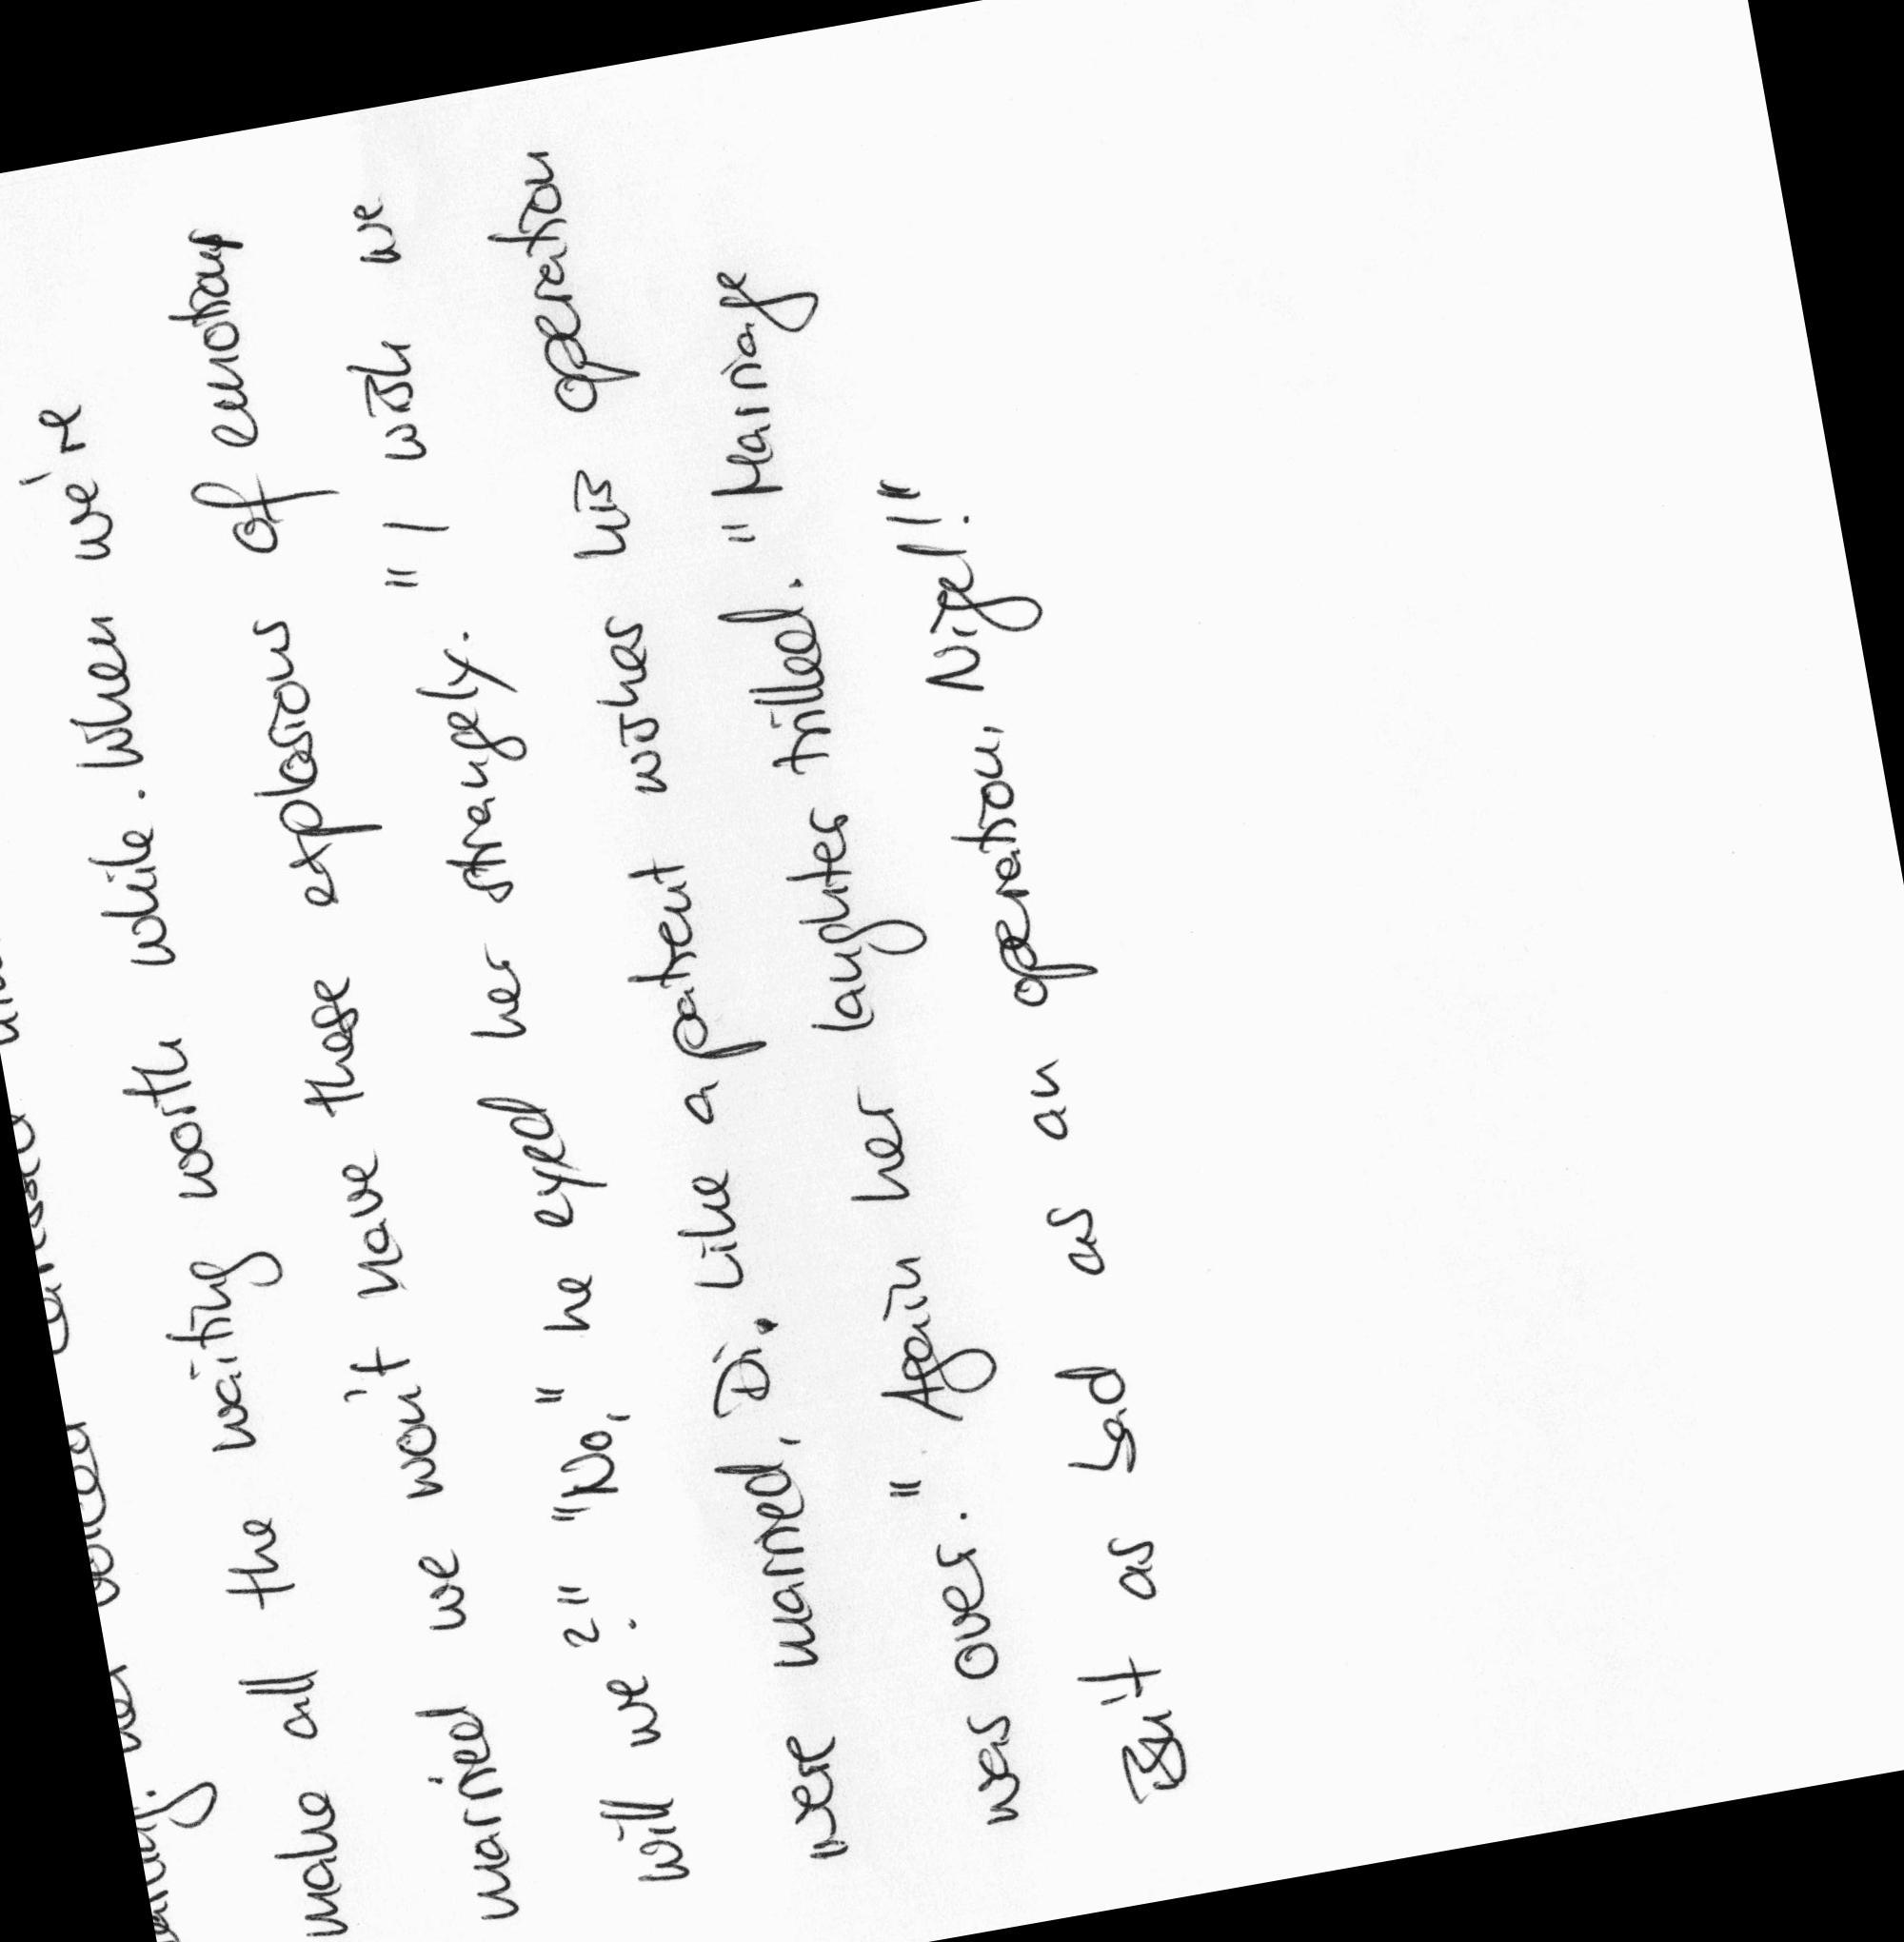 make all the waiting worth while. When we're
married we won't have these explosions of emotions
will we?" "No," he eyed her strangely. "I wish we
were married, Di. Like a patient wishes his operation
was over." Again her laughter trilled. "Marriage
But as bad as an operation, Nigel!"